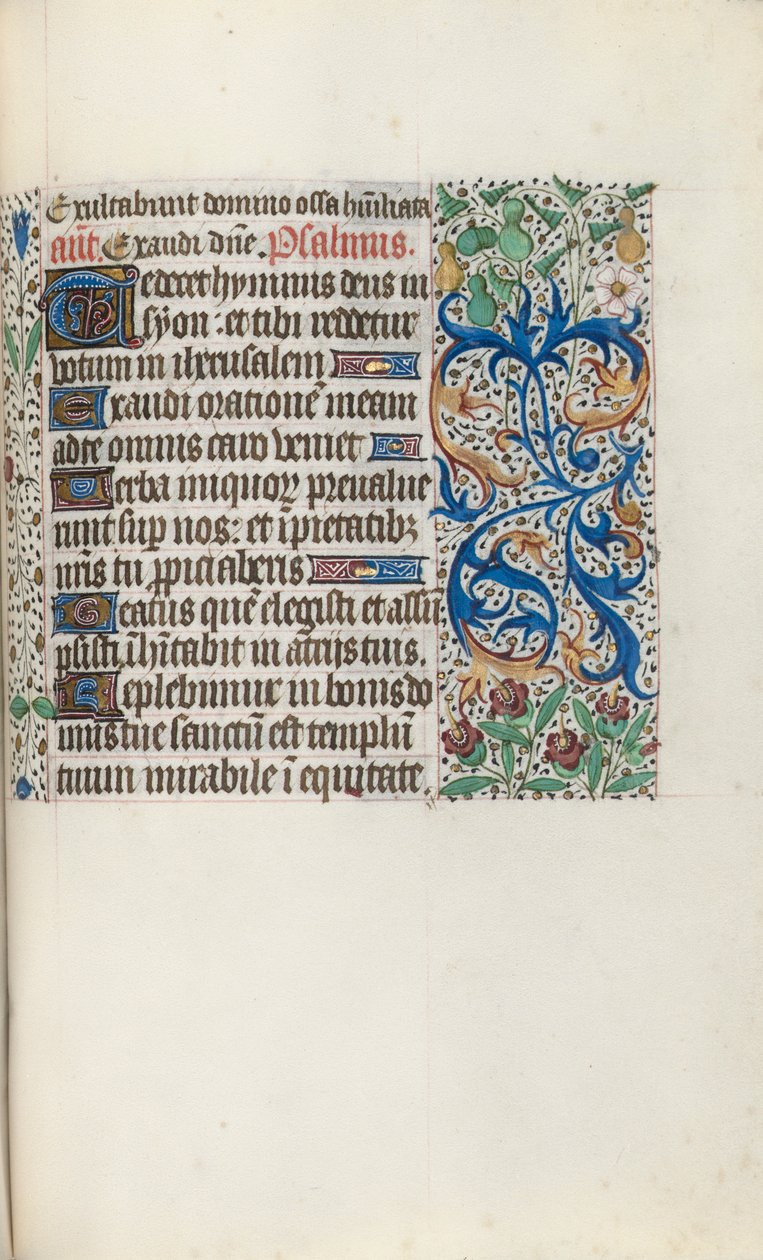 Exultabunt domino ossa hũiliata
añt. Exaudi dñe. Psalmus.
Te decet hymnus deus in
syon: et tibi reddetur
votum in iherusalem
Exaudi orationẽ meam
ad te omnis caro veniet
Verba iniquoꝝ preualue
runt sup nos: et ĩpietatibꝫ
nr̃is tu ꝓpiciaberis
Beatus quẽ elegisti et assũ
psisti ĩhĩtabit in atrijs tuis.
Replebimur in bonis do
mus tue sanctũ est templũ
tuum mirabile ĩ equitate.